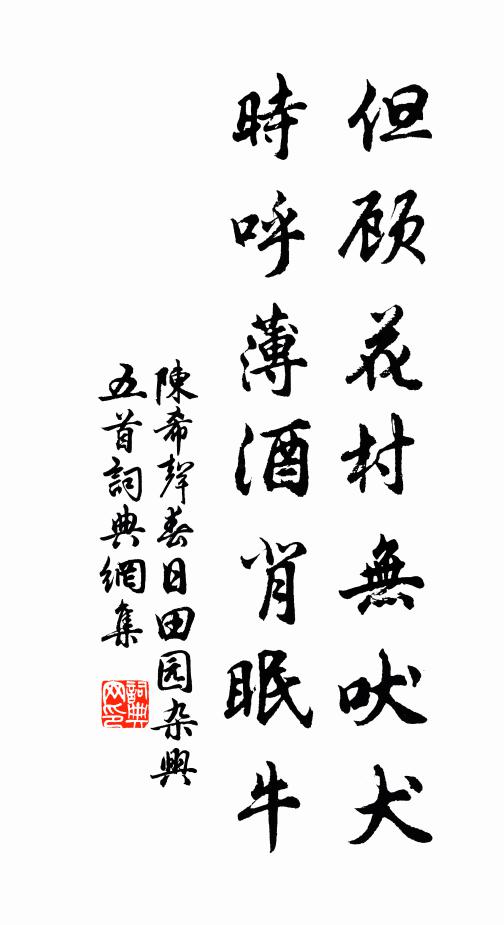 但顾花村無吠犬
時呼薄酒肖眠牛
陳希聲春日田园杂興
五首詞典網集
詞典网印